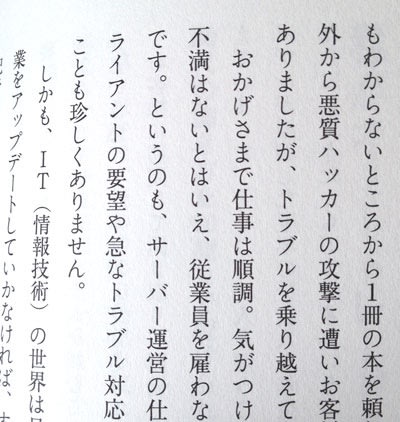 もわからないところから1冊の本を頼
外から悪質ハッカーの攻撃に遭いお客
ありましたが、トラブルを乗り越えて
おかげさまで仕事は順調。気がつけ
不満はないとはいえ、従業員を雇わな
です。というのも、サーバー運営の仕
ライアントの要望や急なトラブル対応
ことも珍しくありません。
しかも、IT（情報技術）の世界は
業をアップデートしていかなければ、